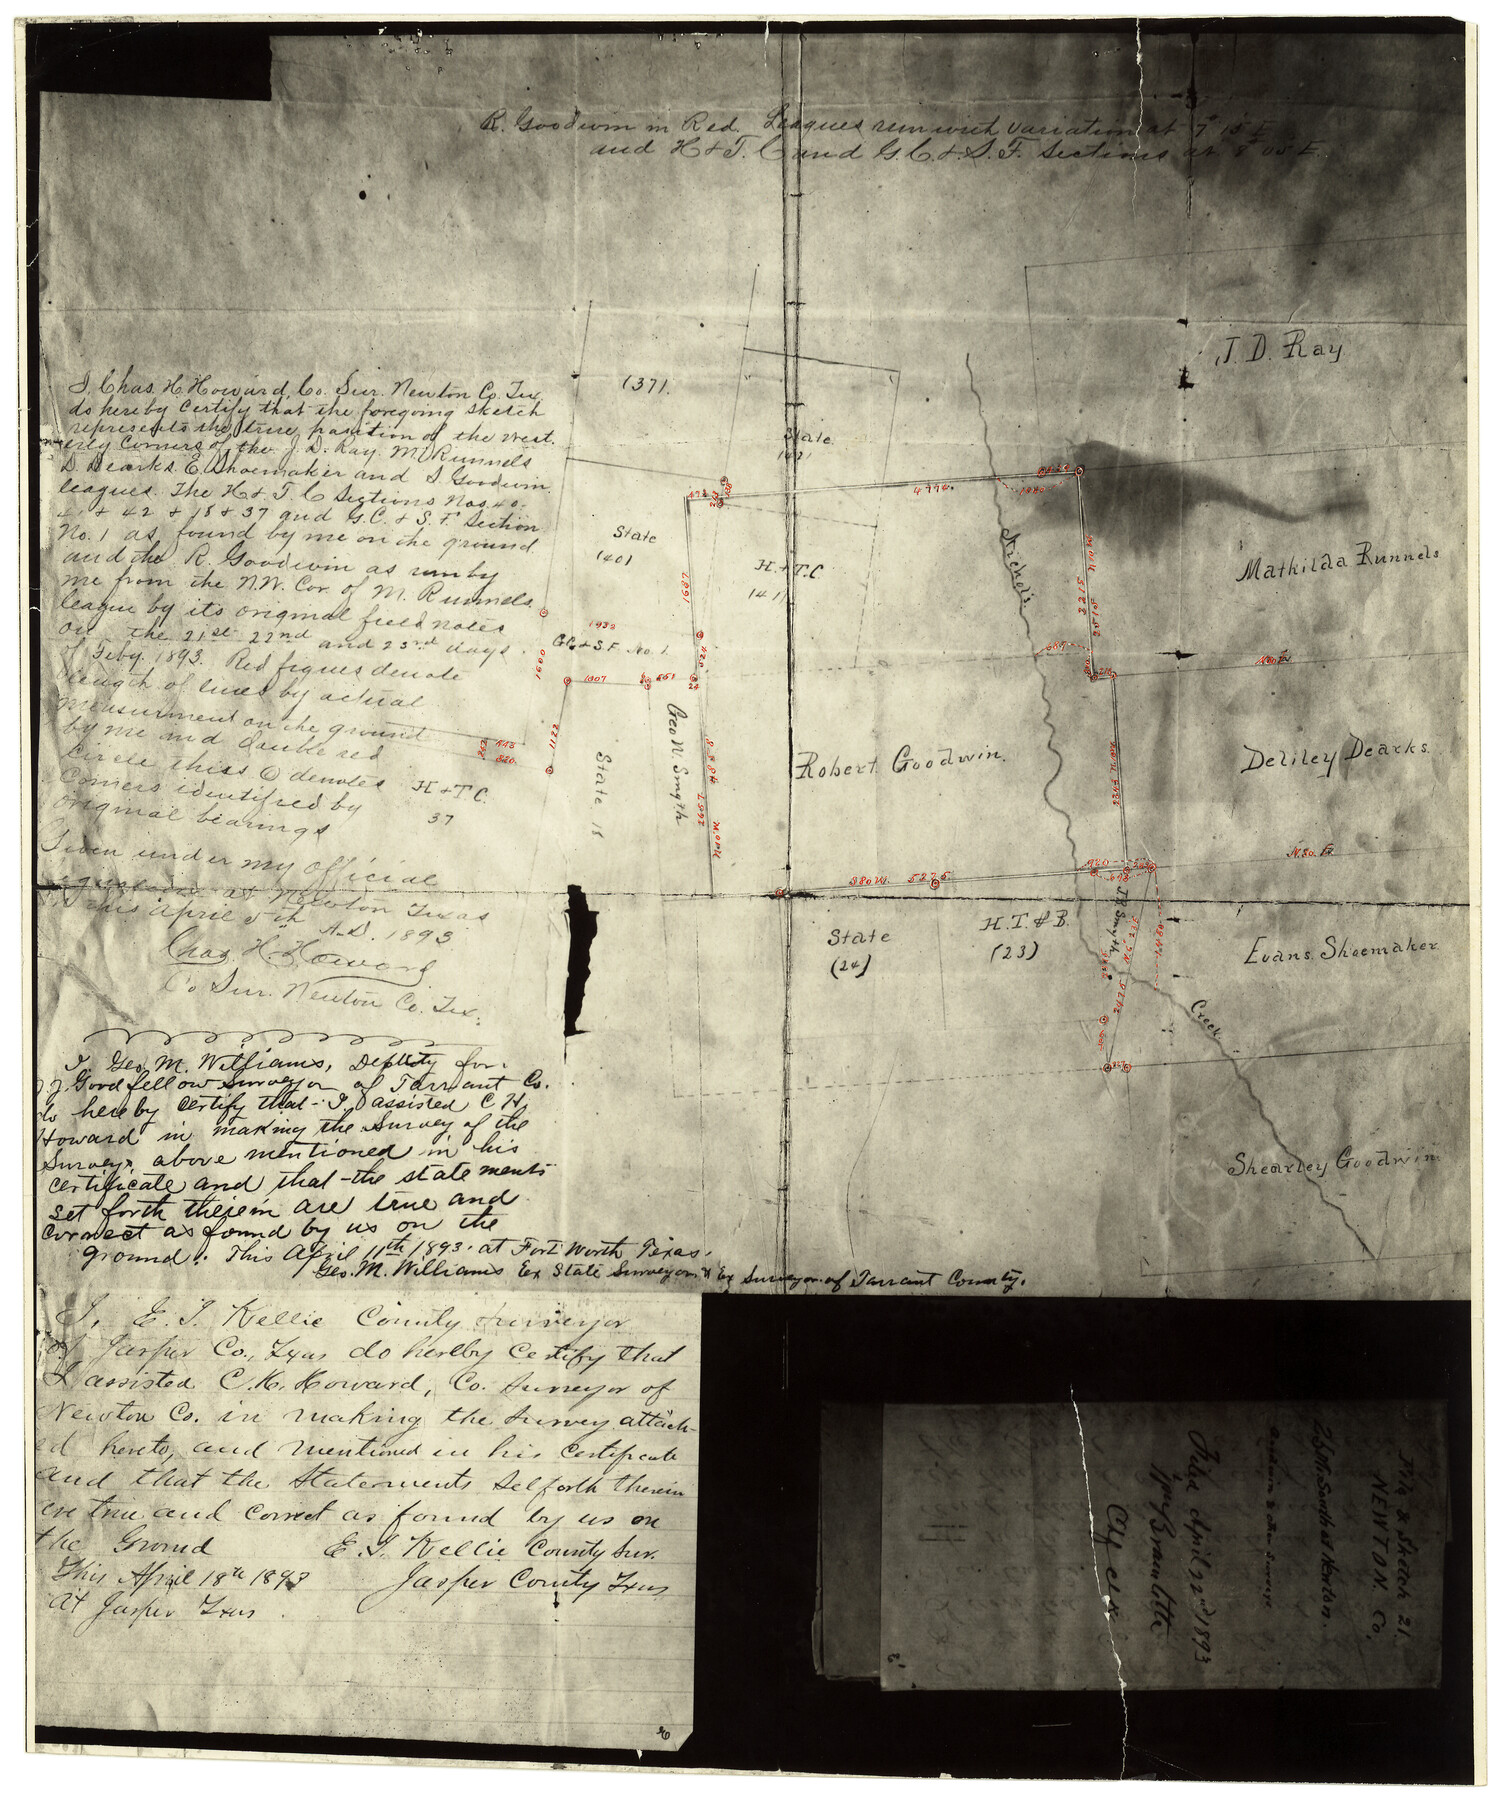 R. Goodwin in Red. Leagues run with variation at 7° 15' E
and H & T. C and G. C. & S. F. Sections at 8° 05' E.
J. D. Ray
(37).
State
State
(40)
H. & T. C
(41)
Mathilda Runnels
Nichols
4774.
1932
G.C. & S.F. No. 1.
1600
1007
551
1122
Geo N. Smyth
State 18
Robert Goodwin.
Deliley Dearks.
H & T. C.
37
380 W. 5275
State
(24)
H. T. & B.
(23)
J R Smyth
Evans Shoemaker
Creek
Shearley Goodwin
I Chas. H. Howard, Co. Sur. Newton Co. Tex.
do hereby certify that the foregoing sketch
represents the true position of the west-
erly corners of the J. D. Ray. M. Runnels
D. Dearks. E. Shoemaker and S Goodwin
leagues. The H & T. C Sections Nos. 40.
41 & 42 & 18 & 37 and G. C. & S. F. Section
No. 1 as found by me on the ground
and the R. Goodwin as run by
me from the N. W. Cor. of M. Runnels
league by its original field notes
on the 21st 22nd and 23rd days
of Feby. 1893. Red figues denote
length of lines by actual
measurment on the ground
by me and double red
Circle thiss ⊙ denotes
Corners identified by
original bearings
Given under my official
signature at Newton Texas
this April 5th A.D. 1893
Chas. H. Howard
Co Sur. Newton Co. Tex.
I Geo. M. Williams, Deputy for
J. J. Goodfellow Surveyor of Tarrant Co.
do hereby certify that I assisted C H.
Howard in making the Survey of the
Surveys above mentioned in his
certificate and that the statements
set forth therein are true and
correct as found by us on the
ground. This April 11th 1893. at Fort Worth Texas.
Geo. M. Williams Ex State Surveyor & Ex Surveyor of Tarrant County.
I, E. I. Kellie County Surveyor
of Jasper Co., Texas do hereby certify that
I assisted C. H. Howard, Co. Surveyor of
Newton Co. in making the Survey attach-
ed hereto, and mentioned in his certificate
and that the statements set forth therein
are true and correct as found by us on
the Ground E. I. Kellie County Sur.
This April 18th 1893 Jasper County Texas
At Jasper Texas.
File & Sketch 21.
NEWTON. Co.
Goodwin & other Surveys
Filed April 22nd 1893
Clf clk